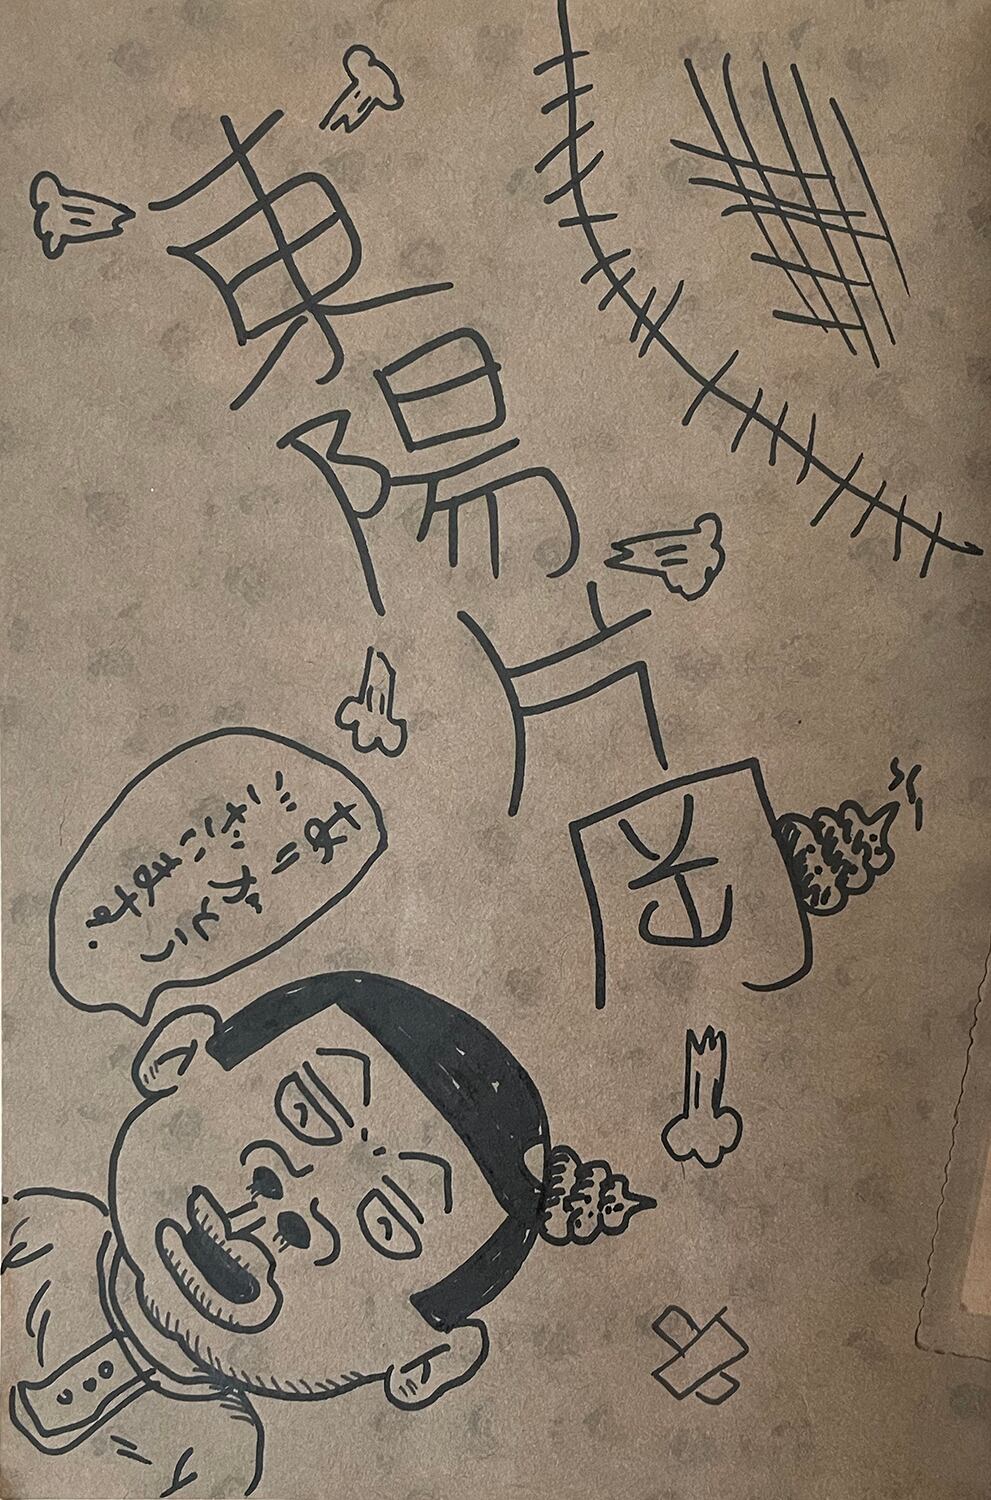 東陽片岡
ありがとう
ございます。